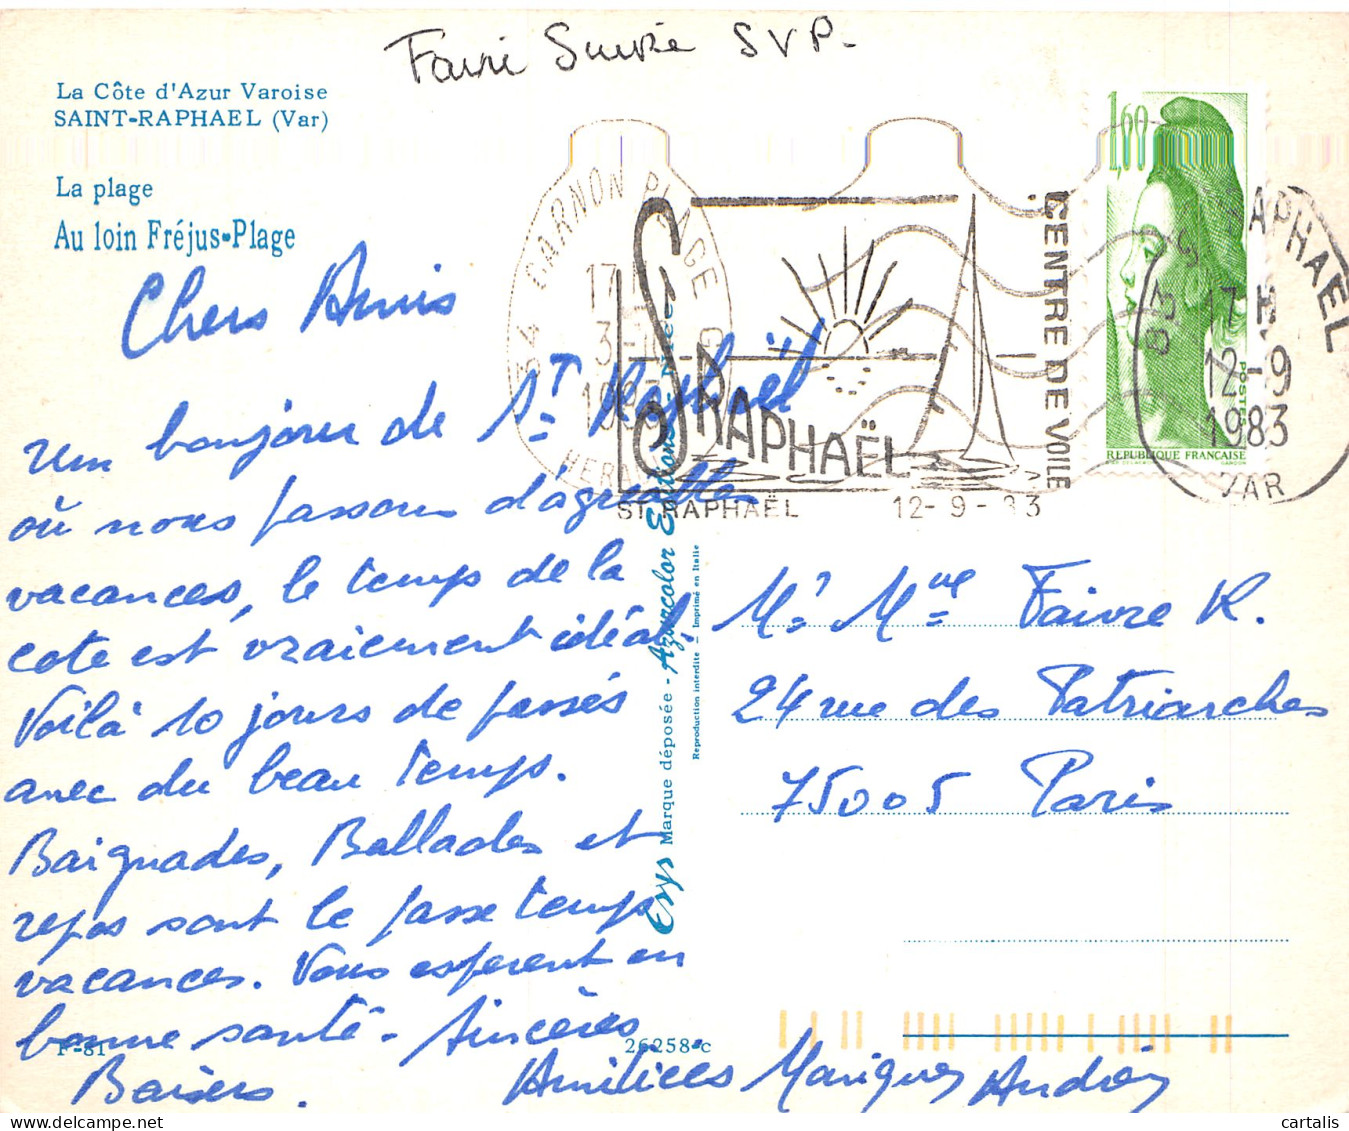 Faire Suivre S.V.P.
La Côte d'Azur Varoise
SAINT-RAPHAEL (Var)
La plage
Au loin Fréjus-Plage
Chers Amis
Um bonjour de St Raphaël
où nous passons d'agréables
vacances, le temps de la
cote est vraiement idéal,
Voilà 10 jours de passés
avec du beau temps.
Baignades, Ballades et
repos sont le passe temps
vacances. Vous esperent en
bonne santé - Sincères
Baisers. Amitiées
F-81
26258-c
Erys Marque déposée - Azurcolor
Reproduction interdite - Imprimé en Italie
34 CARNON PLAGE
17
3
1983
HERAULT
ST RAPHAËL
CENTRE DE VOILE
ST RAPHAËL 12-9-83
1,60
POSTES
REPUBLIQUE FRANCAISE
GANDON
83 ST RAPHAEL
17 H
12-9
1983
VAR
Mr Mme Faivre R.
24 rue des Patriarches
75005 Paris
cartalis.com